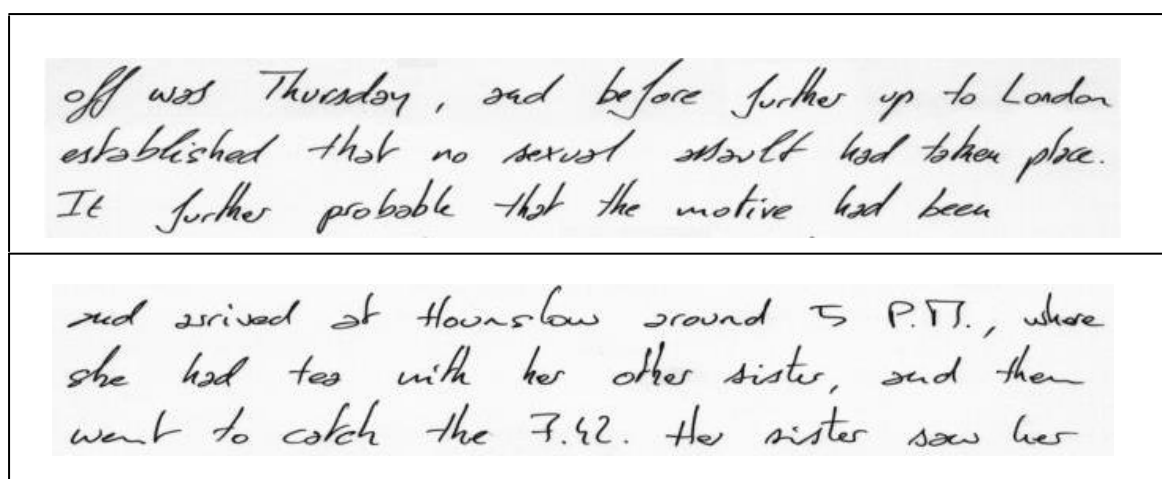 off was Thursday, and before further up to London
established that no sexual assault had taken place.
It further probable that the motive had been
and arrived at Hounslow around 5 P.M., where
she had tea with her other sister, and then
went to catch the 7.42. Her sister saw her